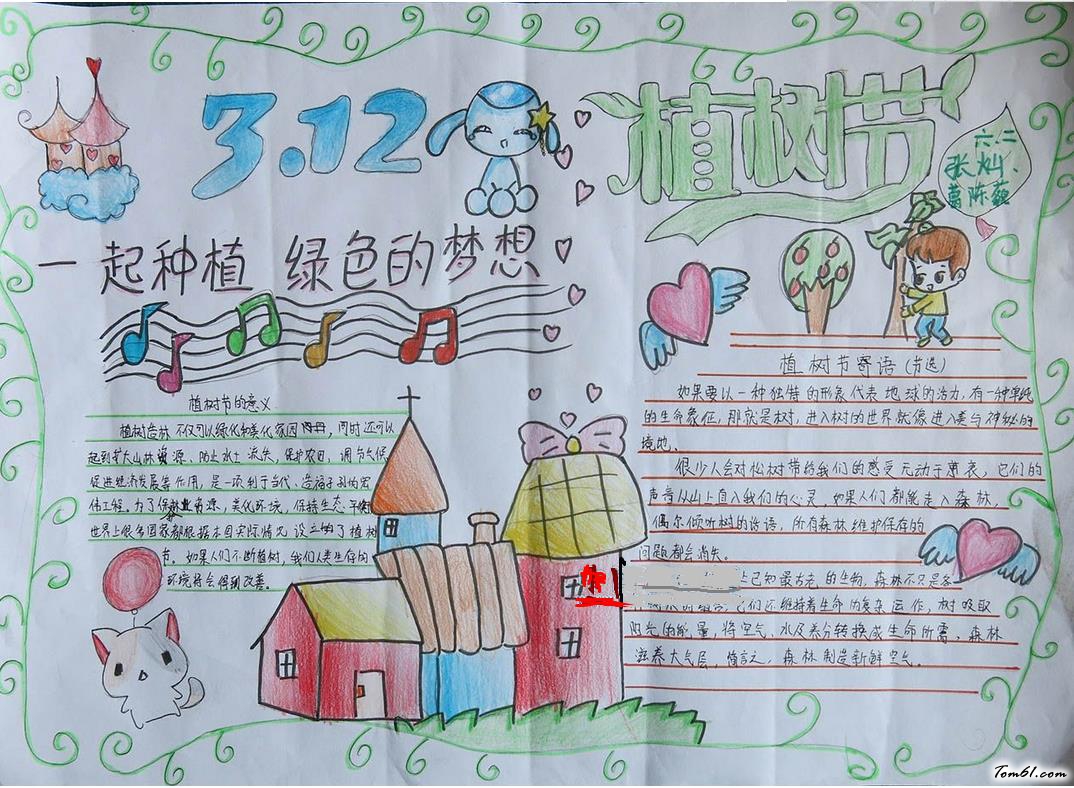 3.12
植树节
六.二
张灿、
葛陈薇
一起种植 绿色的梦想
植树节的意义
植树造林不仅可以绿化和美化家园,同时还可以
起到扩大山林资源、防止水土流失,保护农田,调节气候
促进经济发展等作用,是一项利于当代、造福子孙的宏
伟工程,为了保林业资源,美化环境,保持生态平衡
世界上很多国家都根据本国实际情况设立了植树
节,如果人们不断植树,我们人类生存的
环境将会得到改善。
植树节寄语(节选)
如果要以一种独特的形象代表地球的活力,有一种单纯
的生命象征,那就是树,进入树的世界就像进入美与神秘的
境地。
很少人会对松树带给我们的感受无动于衷,它们的
声音从山上直入我们的心灵,如果人们都能走入森林,
偶尔倾听树的话语,所有森林维护保存的
问题都会消失。
已知最古老的生物,森林不只是各
它们还维持着生命的复杂运作,树吸取
阳光的能量,将空气,水及养分转换成生命所需,森林
滋养大气层,简言之,森林制造新鲜空气。
Tom61.com